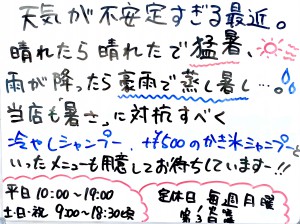 天気が不安定すぎる最近。
晴れたら晴れたで猛暑、
雨が降ったら豪雨で蒸し暑し…。
当店も"暑さ"に対抗すべく
冷やしシャンプー、+¥500のかき氷シャンプーと
いったメニューも用意してお待ちしていますー!!
平日 10:00〜19:00
土日・祝 9:00〜18:30頃
定休日 毎週月曜
第3